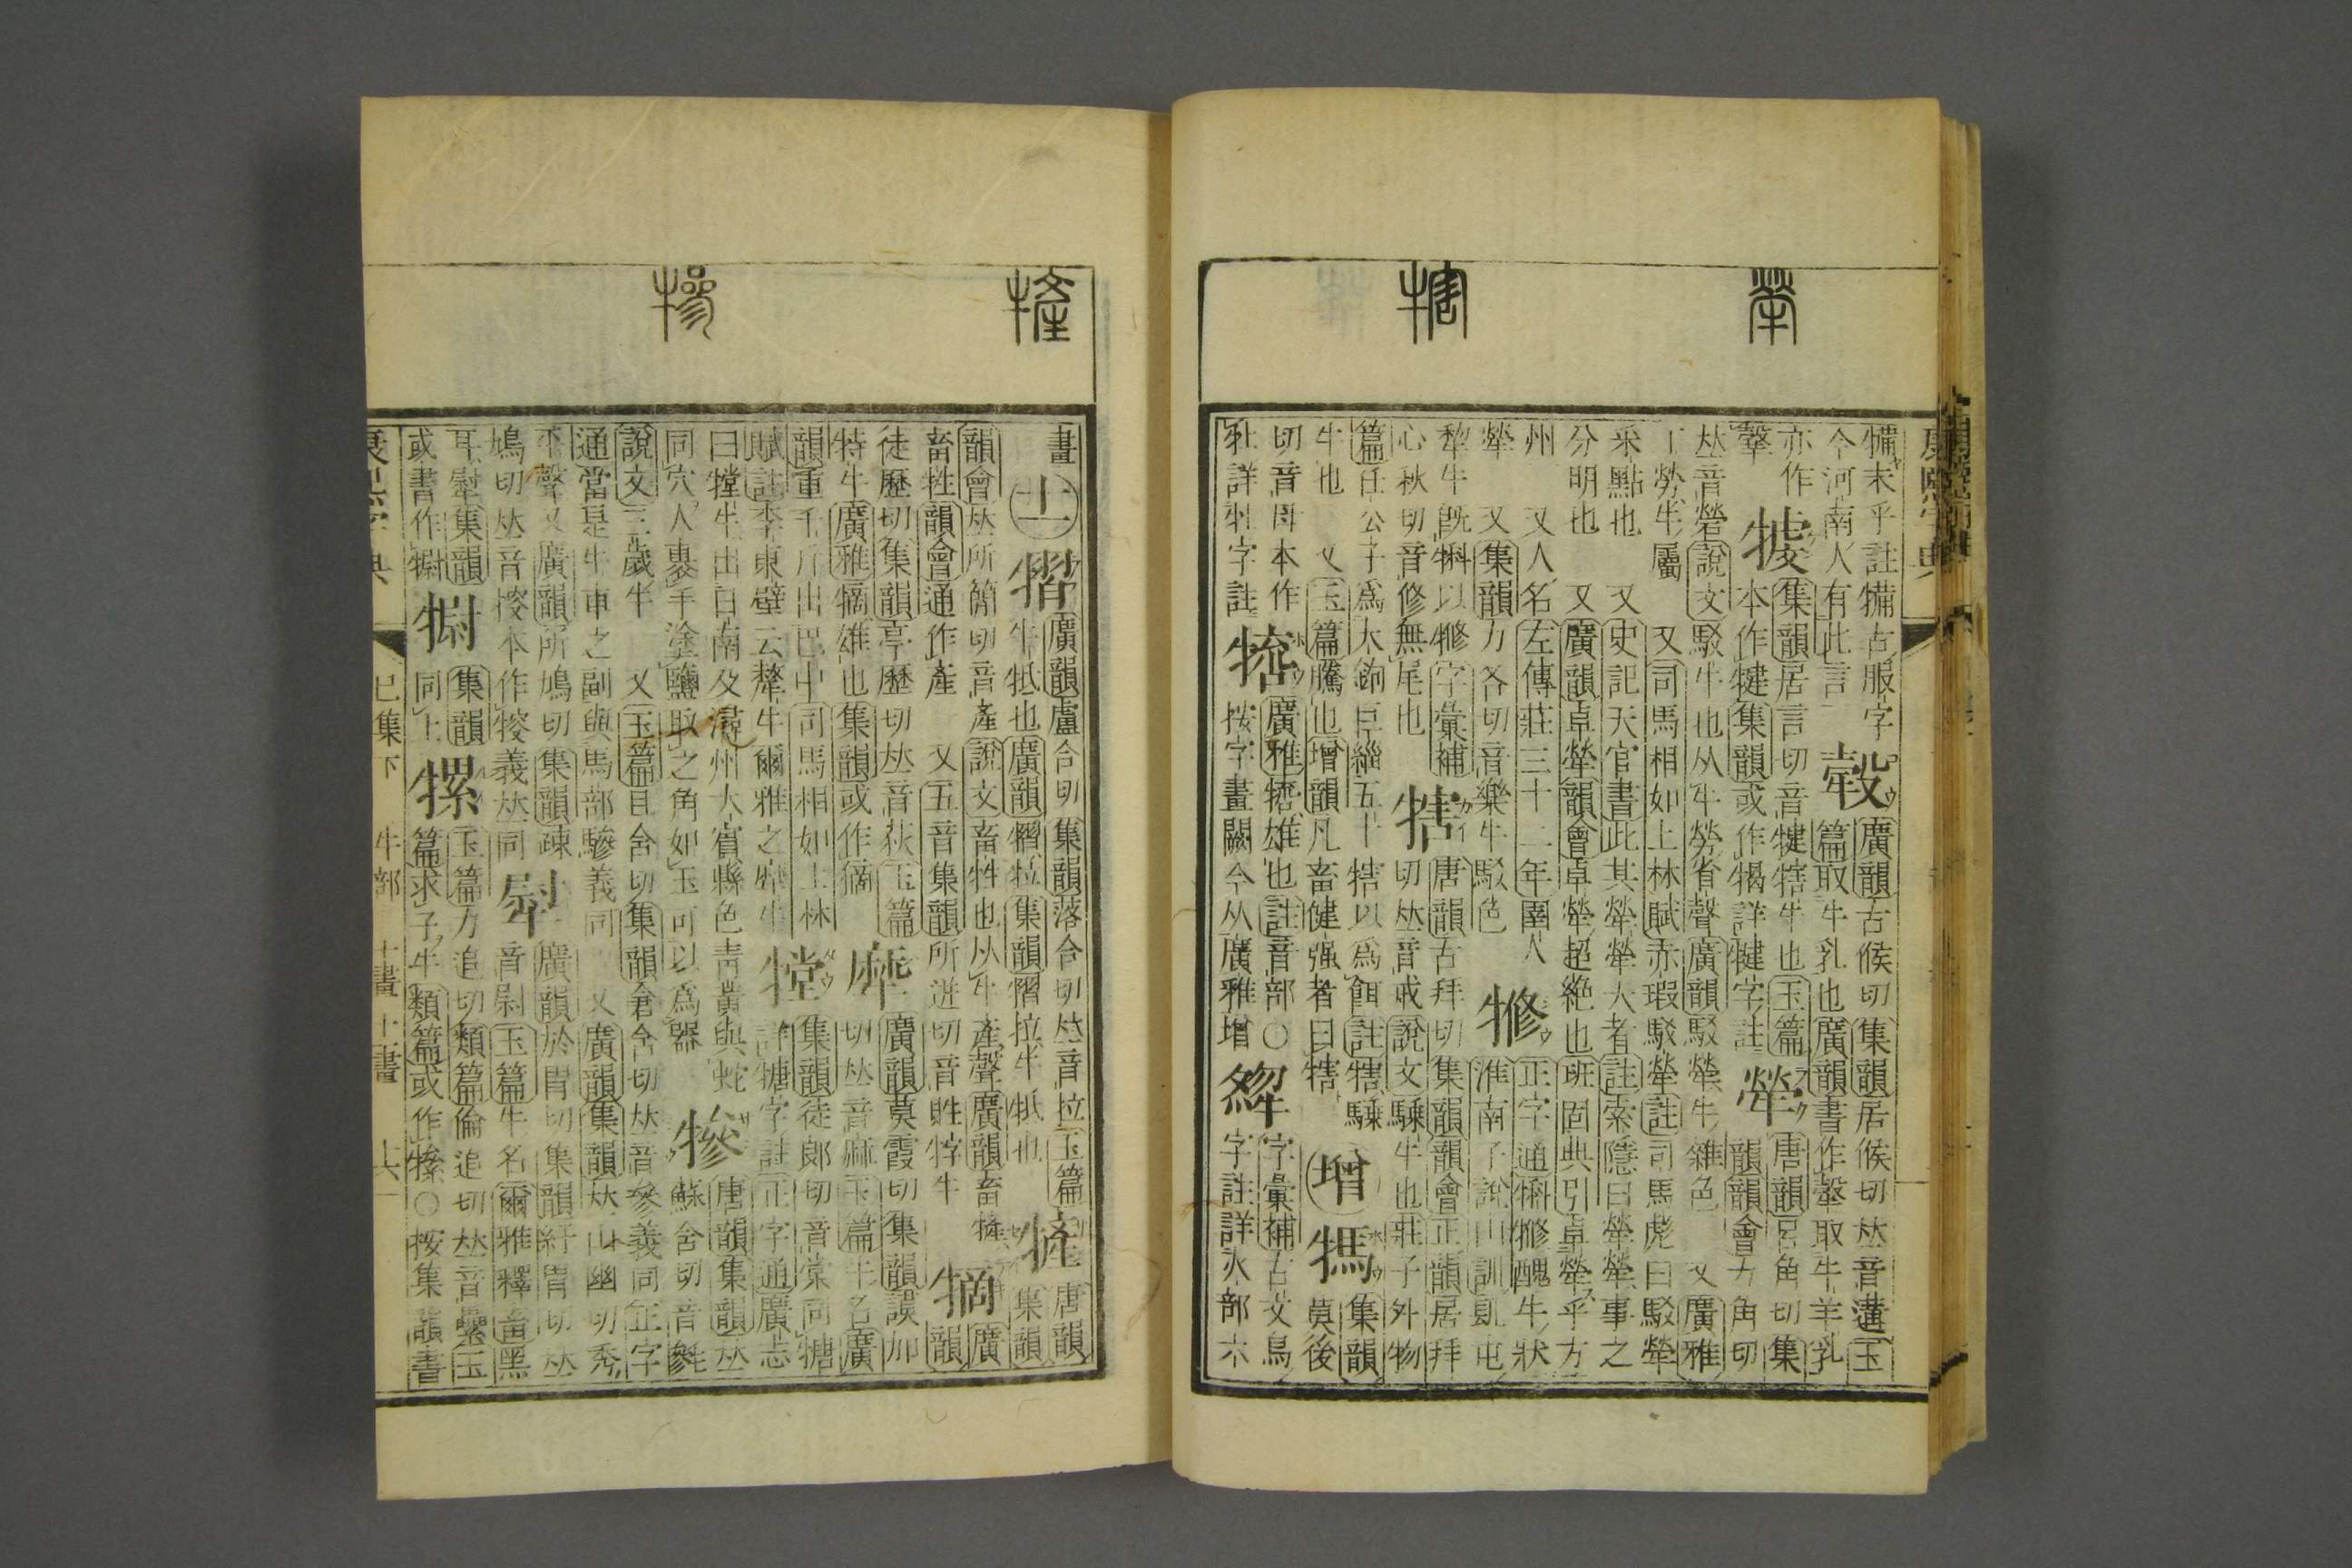 康熙字典
犖
犗
㹌
犙
犕未乎註犕古服字
今河南人有此言
廣韻古候切集韻居候切𠀤音遘玉
篇取牛乳也廣韻書作㝅取牛羊乳
亦作
集韻居言切音犍犗牛也玉篇
本作犍集韻或作犗詳犍字註
犖
唐韻呂角切集
韻韻會力角切
𠀤音犖說文駁牛也从牛勞省聲廣韻駁犖牛雜色 又廣雅
丁犖牛屬 又司馬相如上林賦赤瑕駁犖註司馬彪曰駁犖
采點也 又史記天官書此其犖犖大者註索隱曰犖犖事之
分明也 又廣韻卓犖韻會卓犖超絕也班固典引卓犖乎方
州 又人名左傳莊三十二年圉人
犖 又集韻力各切音樂牛駁色
正字通犐㹋醜牛狀
淮南子說山訓㲉屯
犂牛旣犐以㹋字彙補
心秋切音修無尾也
犗
唐韻古拜切集韻韻會正韻居拜
切𠀤音戒說文騬牛也莊子外物
篇任公子爲大鉤巨緇五十犗以爲餌註犗騬
牛也 又玉篇騰也增韻凡畜健强者曰犗
增
集韻
莫後
切音母本作
牡詳牡字註
廣雅 雄也註音部〇
按字畫闕今从廣雅增
字彙補古文鳥
字註詳火部六
畫
十一
廣韻盧合切集韻落合切𠀤音拉玉篇
牛牴也廣韻 拉集韻 拉牛牴也
唐韻集韻
韻會𠀤所簡切音產說文畜牲也从牛產聲廣韻畜
畜牲韻會通作產 又五音集韻所進切音 牸牛
廣韻
徒歷切集韻亭歷切𠀤音荻玉篇
特牛廣雅 雄也集韻或作
犘
廣韻莫霞切集韻謨加
切𠀤音麻玉篇牛名廣
韻重千斤出巴中司馬相如上林
賦註李東璧云犛牛爾雅之犘牛
集韻徒郎切音棠同㹔
詳㹔字註正字通廣志
曰 牛出日南及潯州大賓縣色青黃與蛇
同穴人裹手塗鹽取之角如玉可以爲器
犙
唐韻集韻𠀤
蘇含切音毿
說文三歲牛 又玉篇且含切集韻倉含切𠀤音參義同正字
通當是牛車之副與馬部驂義同 又廣韻集韻𠀤山幽切秀
平聲又廣韻所鳩切集韻疎
鳩切𠀤音搜本作 義𠀤同
廣韻於胃切集韻紆胃切𠀤
音尉玉篇牛名爾雅釋畜黑
耳 集韻
或書作
集韻
同上
玉篇力追切類篇倫追切𠀤音纍玉
篇求子牛類篇或作 〇按集韻書
康熙字典 巳集下 牛部 十畫 十一畫 六